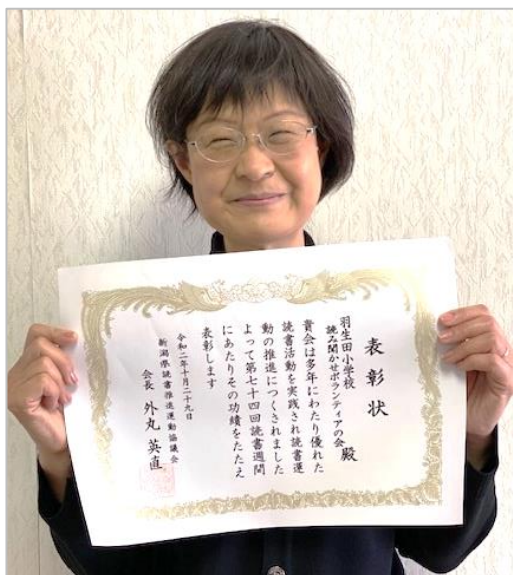 表彰状
羽生田小学校
読み聞かせボランティアの会 殿
貴会は多年にわたり優れた
読書活動を実践され読書運
動の推進につくされました
よって第七十四回読書週間
にあたりその功績をたたえ
表彰します
令和二年十月二十九日
新潟県読書推進運動協議会
会長 外丸 英直